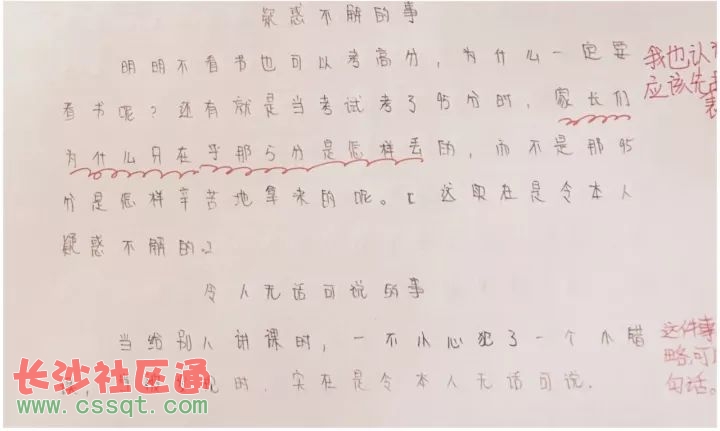 疑惑不解的事
明明不看书也可以考高分，为什么一定要
看书呢？还有就是当考试考了95分时，家长们
为什么只在乎那5分是怎样丢的，而不是那95
分是怎样辛苦地拿来的呢。[这实在是令本人
疑惑不解的。]
我也认为
应该先表
令人无话可说的事
当给别人讲课时，一不小心犯了一个小错
时，实在是令本人无话可说．
这件事
略，可
句话。
长沙社区通
www.cssqt.com